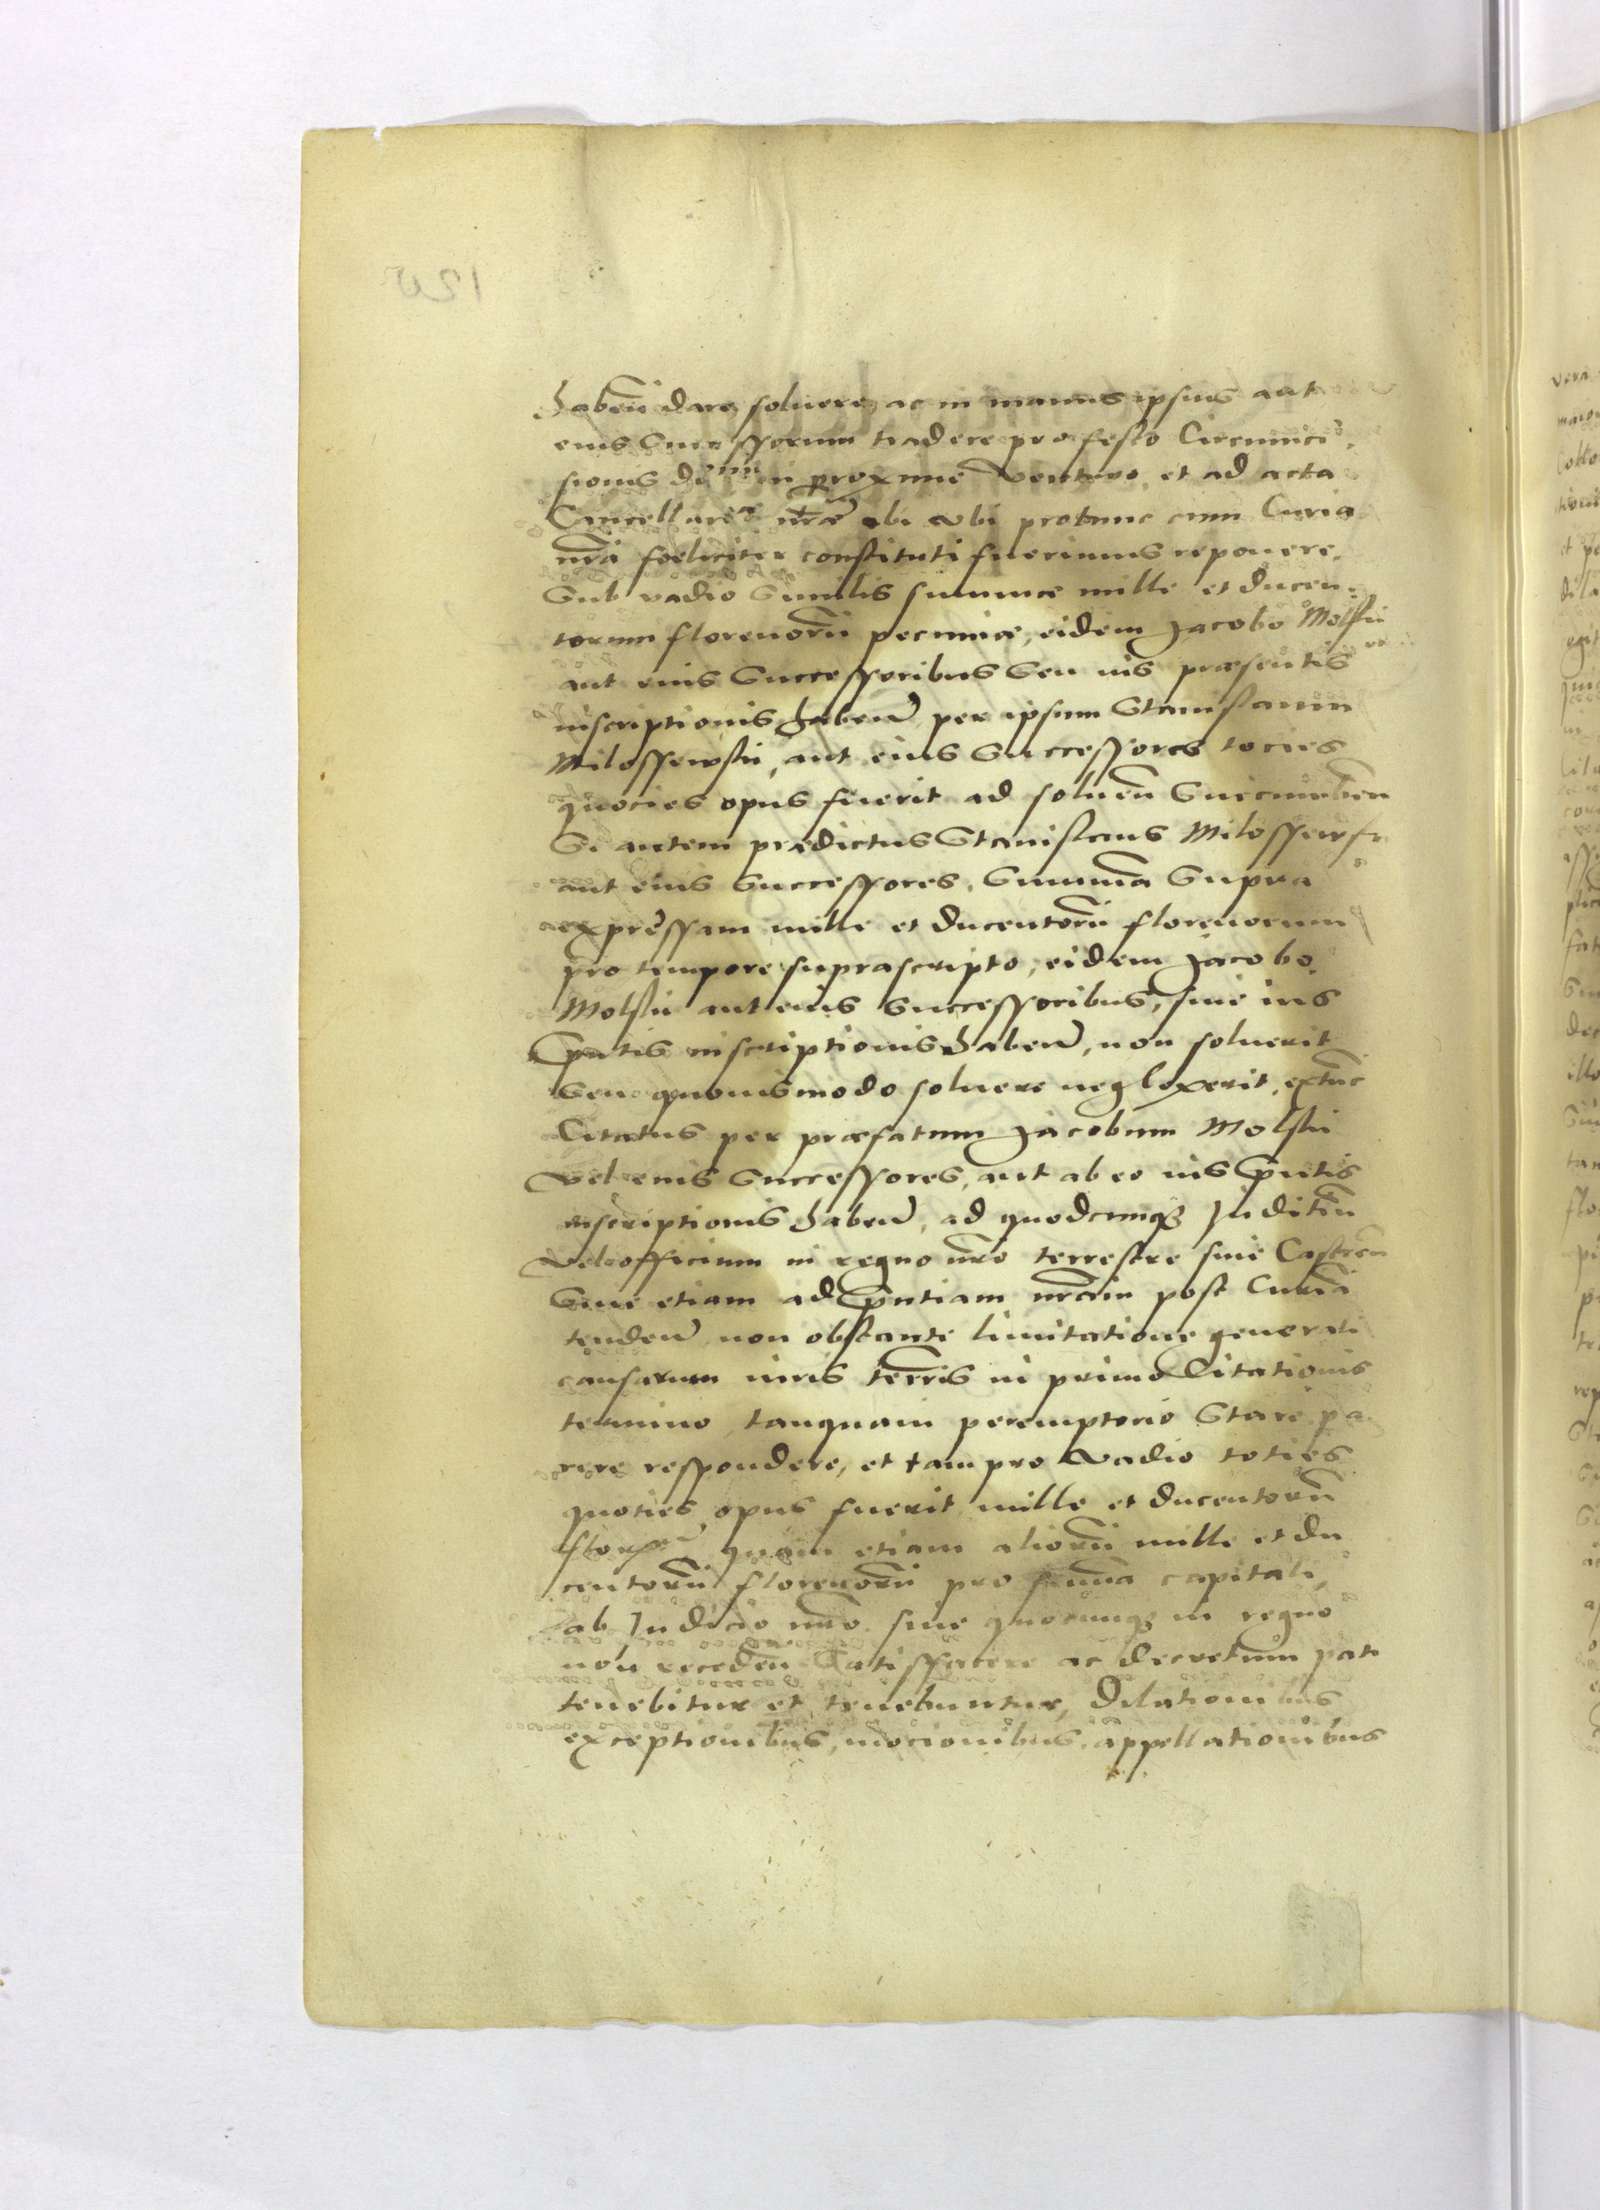 habeñ dare, soluere, ac in manus ipsius aut
eius Successorum tradere pro festo Circumci-
sionis domini proxime venturo, et ad acta
Cancellariæ nræ ibi vbi protunc cum Curia
nrã foeliciter constituti fuerimus reponere.
Sub vadio Similis summæ mille et ducen-
torum florenorũ pecuniæ, eidem Jacobo Molski
aut eius Successoribus Seu ius præsentis
inscriptionis habeñ per ipsum Stanislaum
Milossewski, aut eius Successores tocies
quocies opus fuerit ad soluenđ Succumbeñ
Si autem prædictus Stanislaus Milossewsk
aut eius Successores, Summã Supra
expressam mille et ducentorũ florenorum
pro tempore suprascripto, eidem Jacobo
Molski aut eius Successoribus, siue ius
pñtis inscriptionis habeñ, non soluerit
Seu quouismodo soluere neglexerit, extunc
Citatus per præfatum Jacobum Molski
vel eius Successores, aut ab eo ius pñtis
inscriptionis habeñ, ad quodcunqʒ Juditiũ
vel officium in regno nrõ terrestre siue Castreñ
Siue etiam ad pñtiam nrãm post Curiã
tendeñ non obstante limitatione generali
causarum iuris terris in primo Citationis
termino tanquam peremptorio Stare pa
rere respondere, et tam pro vadio toties
quoties opus fuerit mille et ducentorũ
flor quam etiam aliorũ mille et du
centorũ florenorũ pro summa capitali,
ab Judicio nrõ siue quocunqʒ in regno
non recedeñ Satisfacere ac decretum pati
tenebitur et tenebuntur, Dilationibus
exceptionibus, mocionibus, appellationibus